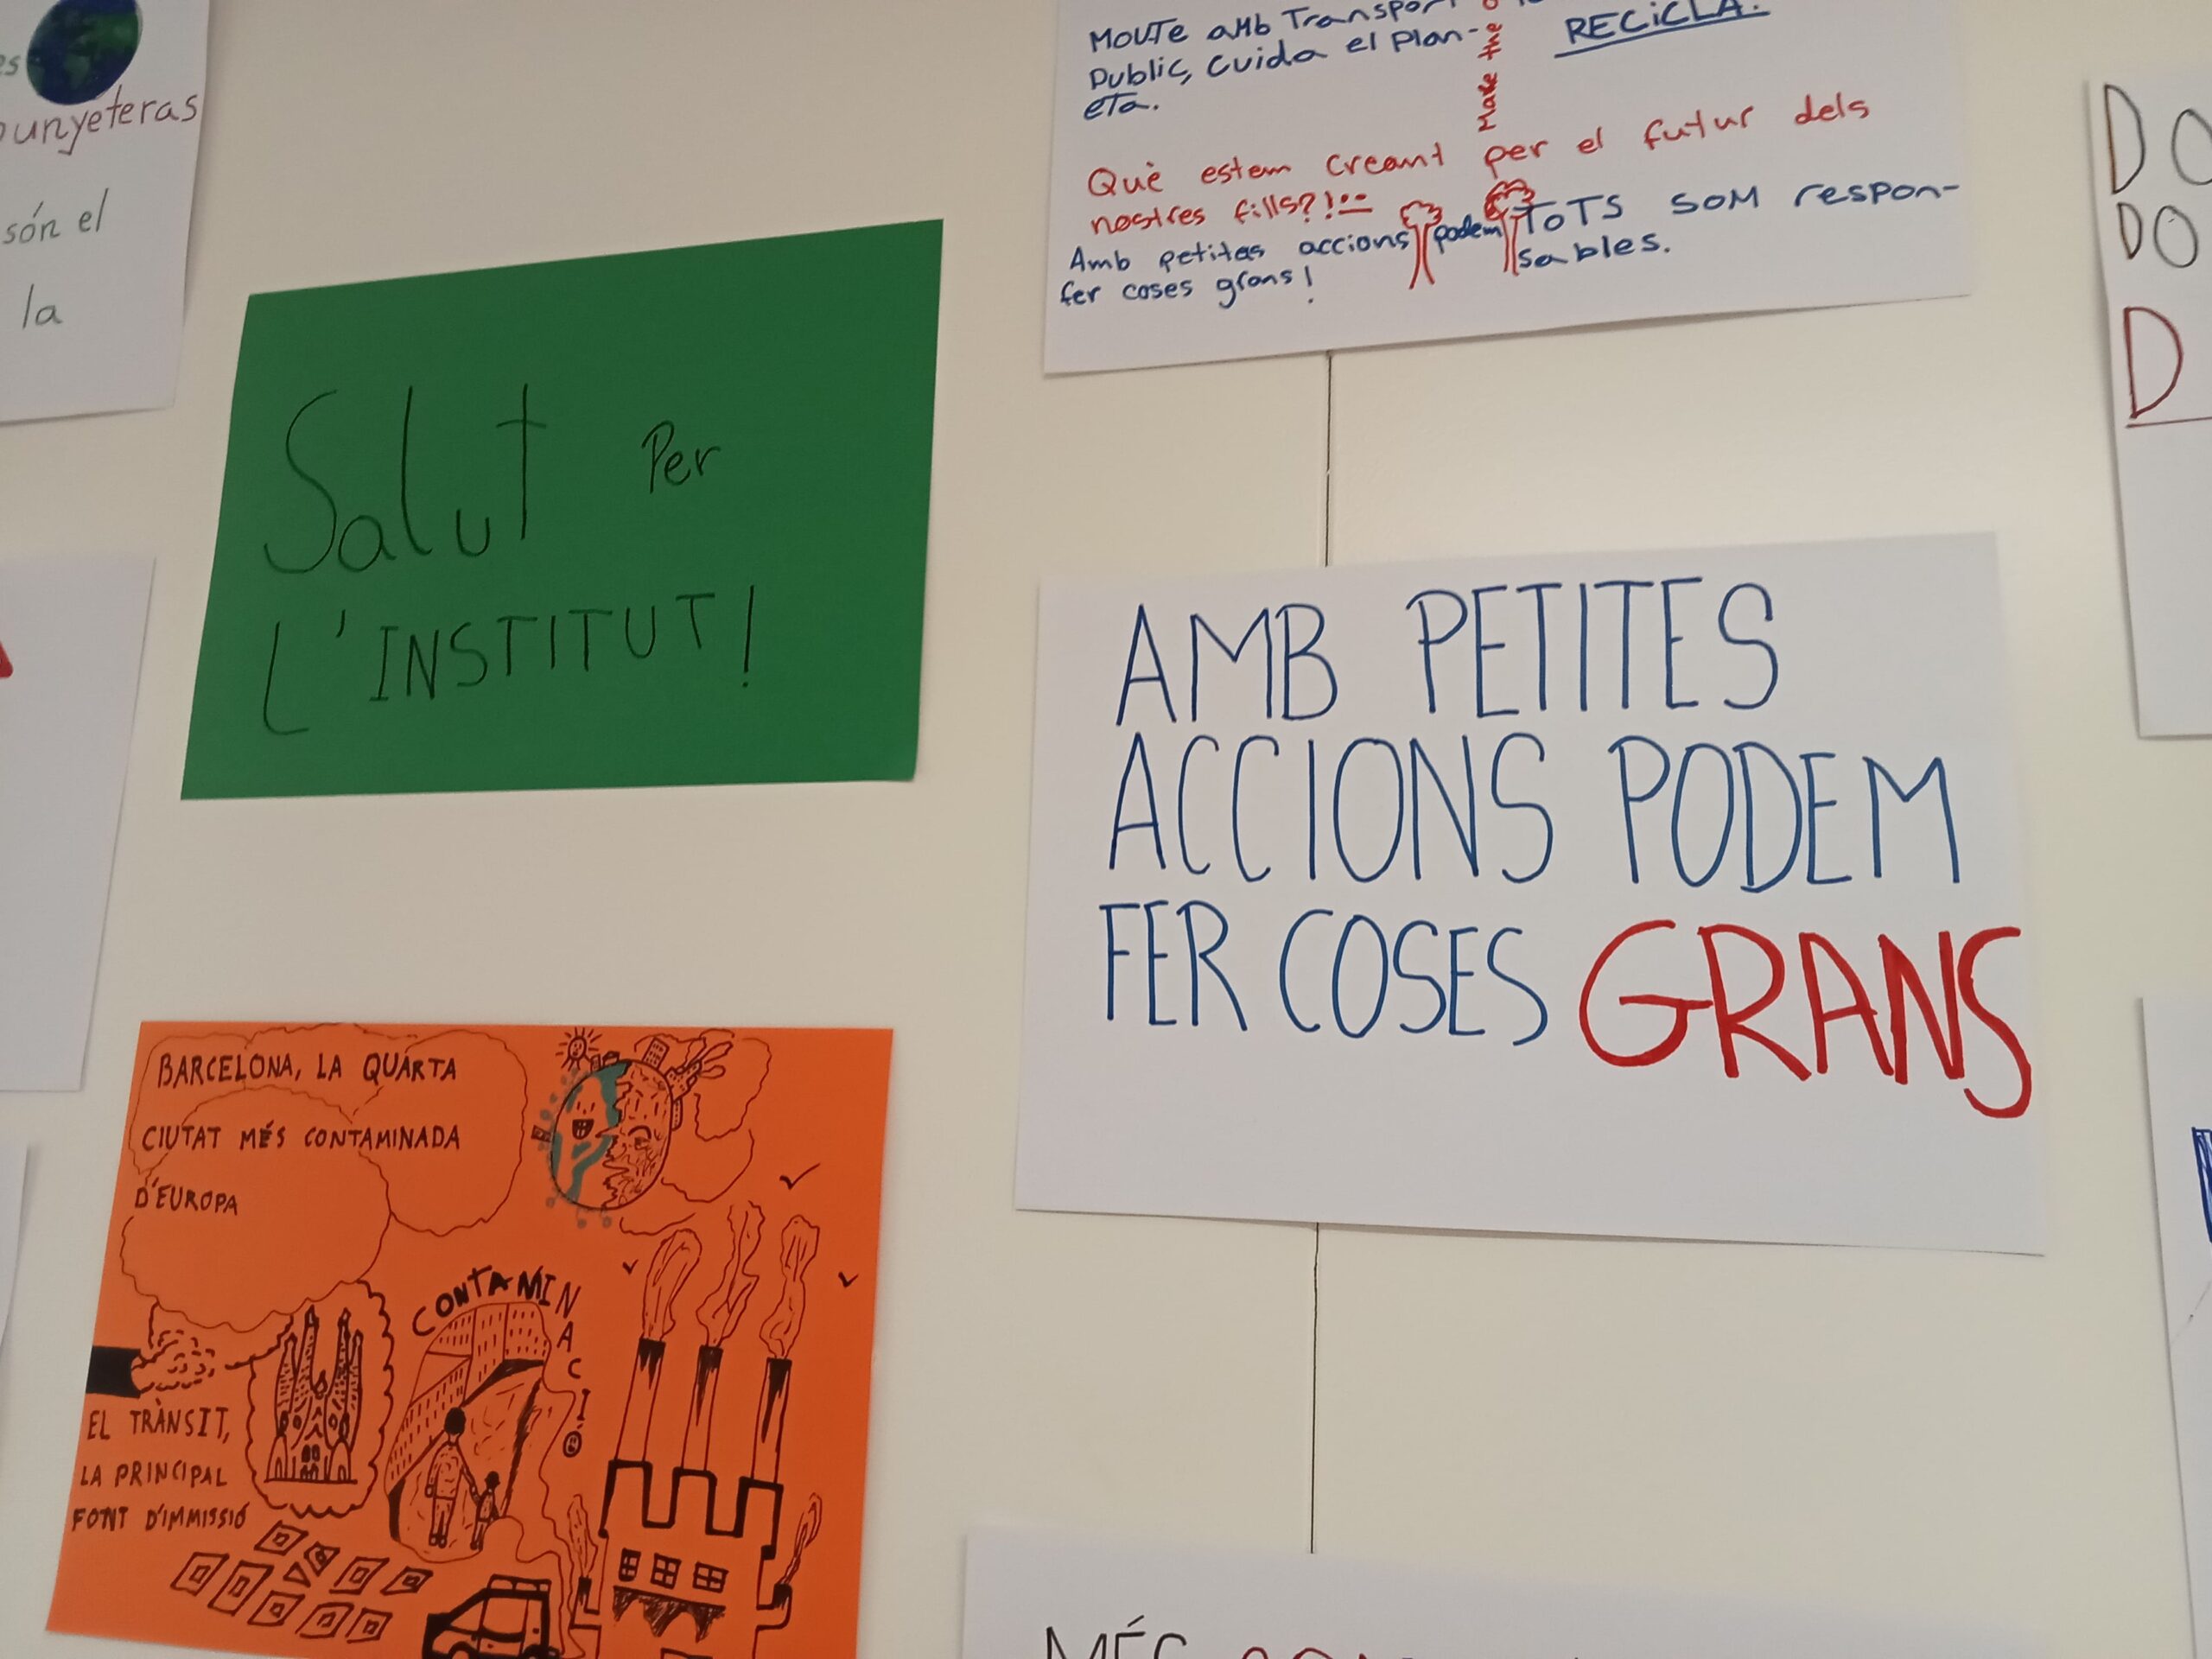 unyeteras
són el
la
MOUTe aMb Transpor
Public, cuida el Plan-
eta.
RECICLA.
Make the
Què estem creant per el futur dels
nostres fills?!
Amb petites accions podem
fer coses grans!
TOTS SOM respon-
sables.
DO
DO
D
Salut Per
L'INSTITUT!
AMB PETITES
ACCIONS PODEM
FER COSES GRANS
BARCELONA, LA QUARTA
CIUTAT MÉS CONTAMINADA
D'EUROPA
CONTAMINACIÓ
EL TRÀNSIT,
LA PRINCIPAL
FONT D'IMMISSIÓ
MÉS